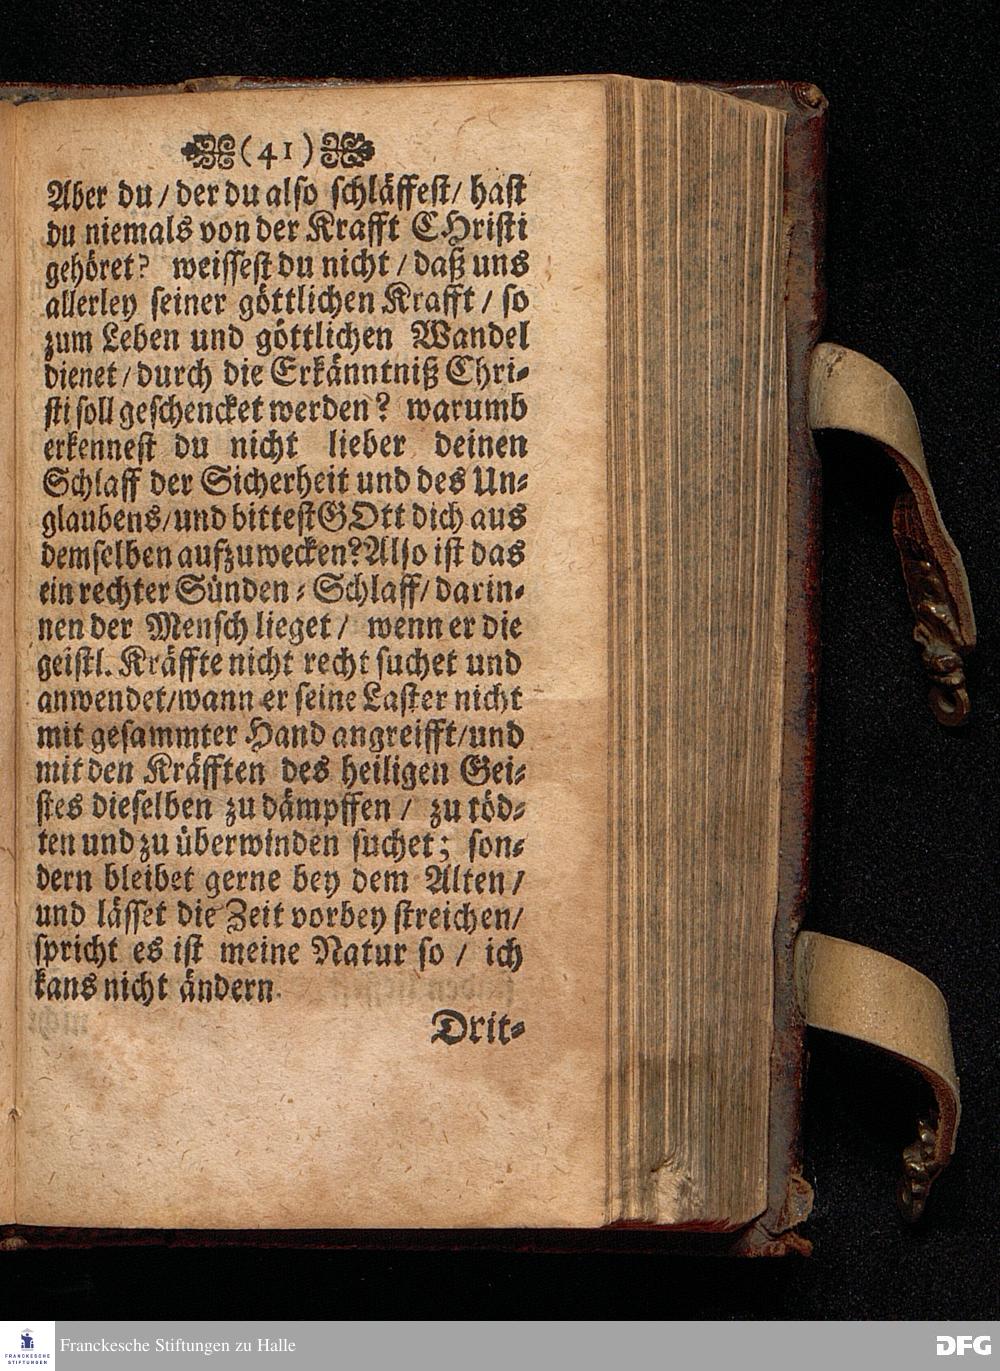 (41)
Aber du/der du also schläffest/ hast
du niemals von der Krafft CHristi
gehöret? weissest du nicht/daß uns
allerley seiner göttlichen Krafft/so
zum Leben und göttlichen Wandel
dienet/durch die Erkänntniß Chri-
sti soll geschencket werden? warumb
erkennest du nicht lieber deinen
Schlaff der Sicherheit und des Un-
glaubens/und bittest GOtt dich aus
demselben aufzuwecken? Also ist das
ein rechter Sünden-Schlaff/darin-
nen der Mensch lieget/ wenn er die
geistl. Kräffte nicht recht suchet und
anwendet/wann er seine Laster nicht
mit gesammter Hand angreifft/und
mit den Kräfften des heiligen Gei-
stes dieselben zu dämpffen/ zu töd-
ten und zu überwinden suchet; son-
dern bleibet gerne bey dem Alten/
und lässet die Zeit vorbey streichen/
spricht es ist meine Natur so/ ich
kans nicht ändern.
Drit-
FRANCKESCHE STIFTUNGEN
Franckesche Stiftungen zu Halle
DFG